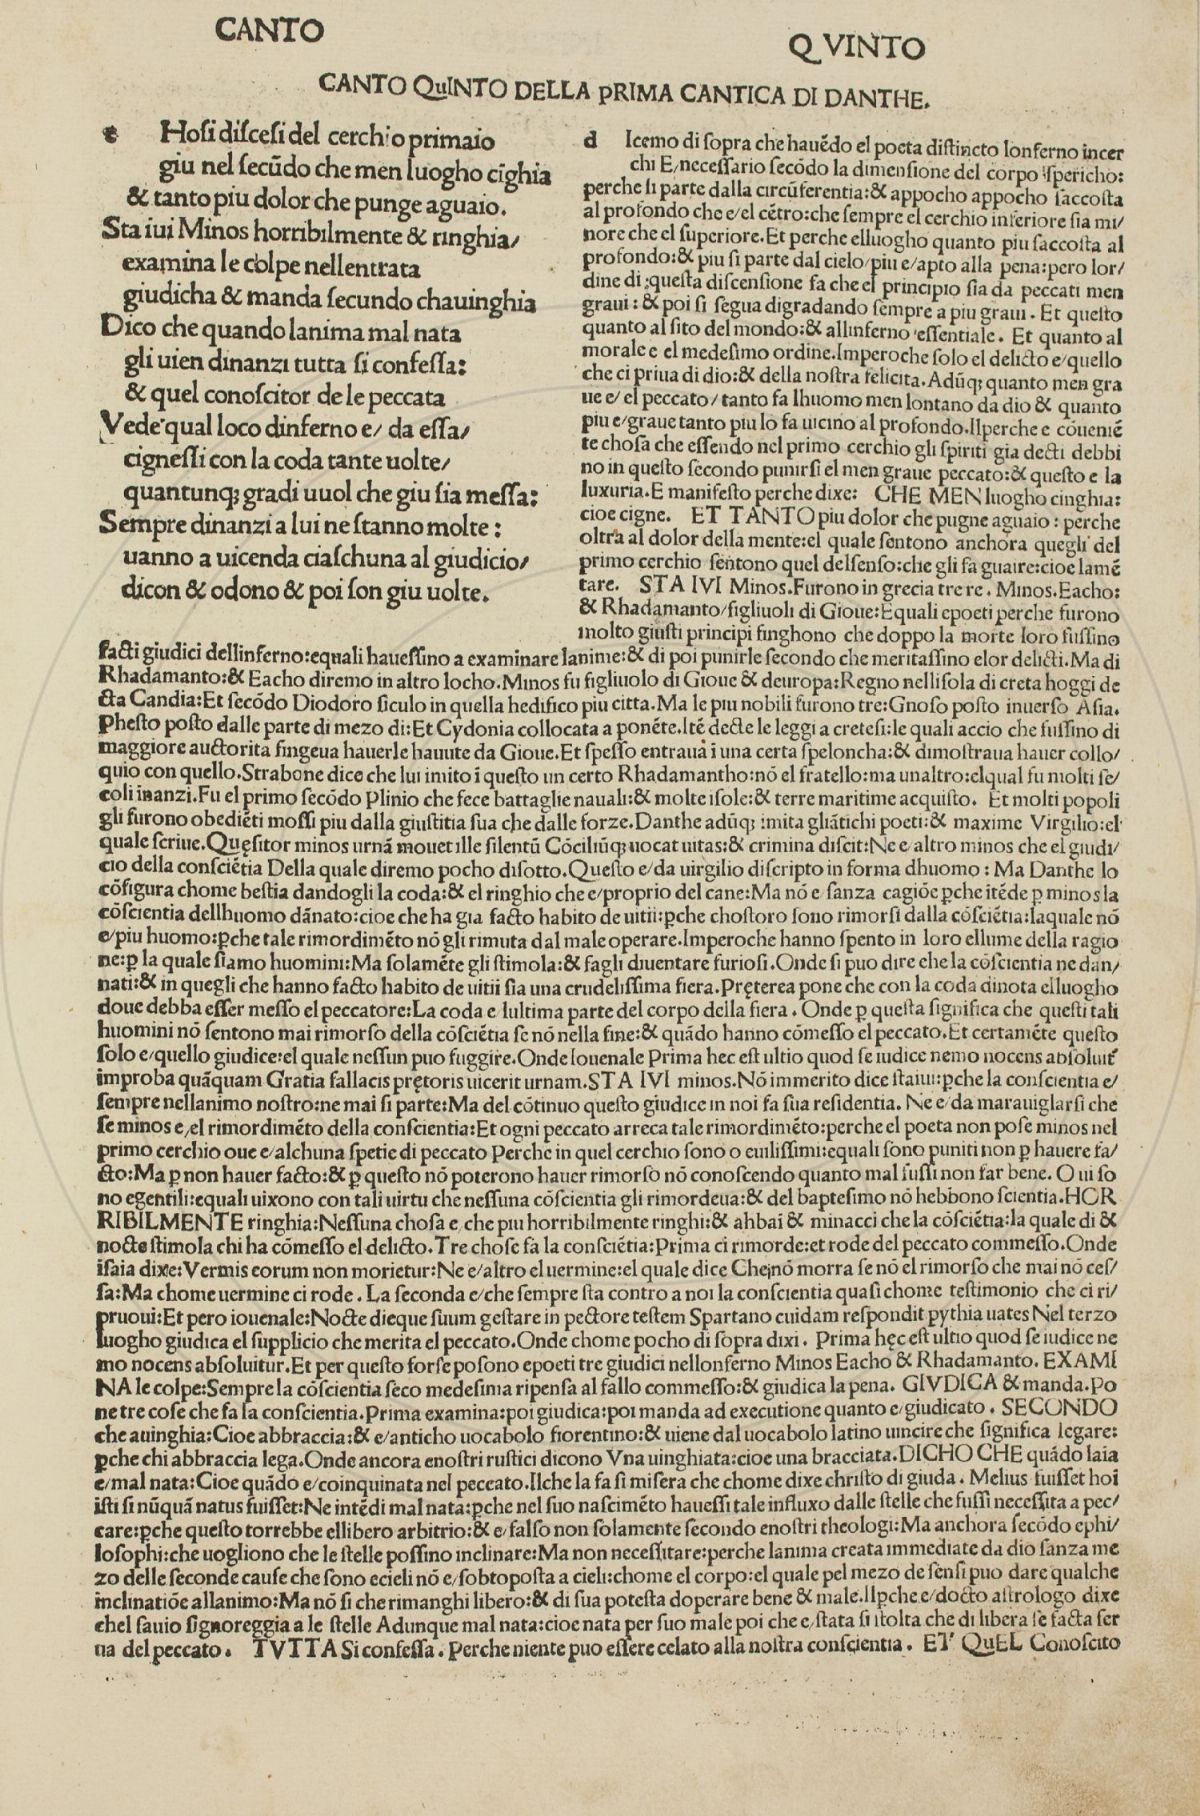 CANTO
QVINTO
CANTO QuINTO DELLA pRIMA CANTICA DI DANTHE.
e Hosi discesi del cerchio primaio
giu nel secūdo che men luogho cīghia
& tanto piu dolor che punge aguaio.
Sta iui Minos horribilmente & ringhia/
examina le colpe nellentrata
giudicha & manda secundo chauinghia
Dico che quando lanima mal nata
gli uien dinanzi tutta si confessa:
& quel conoscitor de le peccata
Vede qual loco dinferno e/ da essa/
cignessi con la coda tante uolte/
quantunq; gradi uuol che giu sia messa:
Sempre dinanzi a lui ne stanno molte:
uanno a uicenda ciaschuna al giudicio/
dicon & odono & poi son giu uolte.
d Icemo di sopra che hauēdo el poeta distincto lonferno incer
chi E/necessario secōdo la dimensione del corpo spericho:
perche si parte dalla circūferentia:& appocho appocho saccosta
al profondo che e/el cētro:che sempre el cerchio inferiore sia mi/
nore che el superiore.Et perche elluogho quanto piu saccosta al
profondo:& piu si parte dal cielo/piu e/apto alla pena:pero lor/
dine di questa discensione fa che el principio sia da peccati men
graui: & poi si segua digradando sempre a piu graui. Et questo
quanto al sito del mondo:& allinferno essentiale. Et quanto al
morale e el medesimo ordine.Imperoche solo el delicto e/quello
che ci priua di dio:& della nostra felicita.Adūq; quanto men gra
ue e/ el peccato/tanto fa lhuomo men lontano da dio & quanto
piu e/graue tanto piu lo fa uicino al profondo.Ilperche e cōueniē
te chosa che essendo nel primo cerchio gli spiriti gia decti debbi
no in questo secondo punirsi el men graue peccato:& questo e la
luxuria.E manifesto perche dixe: CHE MEN luogho cinghia:
cioe cigne. ET TANTO piu dolor che pugne aguaio: perche
oltra al dolor della mente:el quale sentono anchora quegli del
primo cerchio sentono quel delsenso:che gli fa guaire:cioe lamē
tare. STA IVI Minos.Furono in grecia tre re. Minos.Eacho:
& Rhadamanto/figliuoli di Gioue:Equali epoeti perche furono
molto giusti principi finghono che doppo la morte loro fussino
facti giudici dellinferno:equali hauessino a examinare lanime:& di poi punirle secondo che meritassino elor delicti.Ma di
Rhadamanto:& Eacho diremo in altro locho.Minos fu figliuolo di Gioue & deuropa:Regno nellisola di creta hoggi de
cta Candia:Et secōdo Diodoro siculo in quella hedifico piu citta.Ma le piu nobili furono tre:Gnoso posto inuerso Asia.
Phesto posto dalle parte di mezo di:Et Cydonia collocata a ponēte.Itē decte le leggi a cretesi:le quali accio che fussino di
maggiore auctorita fingeua hauerle hauute da Gioue.Et spesso entraua ī una certa speloncha:& dimostraua hauer collo/
quio con quello.Strabone dice che lui imito ī questo un certo Rhadamantho:nō el fratello:ma unaltro:elqual fu molti se/
coli inanzi.Fu el primo secōdo Plinio che fece battaglie nauali:& molte isole:& terre maritime acquisto. Et molti popoli
gli furono obediēti mossi piu dalla giustitia sua che dalle forze.Danthe adūq; imita gliātichi poeti:& maxime Virgilio:el
quale scriue.Quęsitor minos urnā mouet ille silentū Cōciliūq; uocat uitas:& crimina discit:Ne e/altro minos che el giudi/
cio della consciētia Della quale diremo pocho disotto.Questo e/da uirgilio discripto in forma dhuomo: Ma Danthe lo
cōfigura chome bestia dandogli la coda:& el ringhio che e/proprio del cane:Ma nō e sanza cagiōe ꝑche itēde ꝑ minos la
cōscientia dellhuomo dānato:cioe che ha gia facto habito de uitii:ꝑche chostoro sono rimorsi dalla cōsciētia:laquale nō
e/piu huomo:ꝑche tale rimordimēto nō gli rimuta dal male operare.Imperoche hanno spento in loro ellume della ragio
ne:ꝑ la quale siamo huomini:Ma solamēte gli stimola:& fagli diuentare furiosi.Onde si puo dire che la cōscientia ne dan/
nati:& in quegli che hanno facto habito de uitii sia una crudelissima fiera.Pręterea pone che con la coda dinota elluogho
doue debba esser messo el peccatore:La coda e/lultima parte del corpo della fiera. Onde ꝑ questa significa che questi tali
huomini nō sentono mai rimorso della cōsciētia se nō nella fine:& quādo hanno cōmesso el peccato.Et certamēte questo
solo e/quello giudice:el quale nessun puo fuggire.Onde Iouenale Prima hec est ultio quod se iudice nemo nocens absoluit
improba quāquam Gratia fallacis prętoris uicerit urnam.STA IVI minos.Nō immerito dice staiui:ꝑche la conscientia e/
sempre nellanimo nostro:ne mai si parte:Ma del cōtinuo questo giudice in noi fa sua residentia. Ne e/da marauiglarsi che
se minos e/el rimordimēto della conscientia:Et ogni peccato arreca tale rimordimēto:perche el poeta non pose minos nel
primo cerchio oue e/alchuna spetie di peccato Perche in quel cerchio sono o euilissimi:equali sono puniti non ꝑ hauere fa/
cto:Ma ꝑ non hauer facto:& ꝑ questo nō poterono hauer rimorso nō conoscendo quanto mal fussi non far bene. O ui so
no egentili:equali uixono con tali uirtu che nessuna cōscientia gli rimordeua:& del baptesimo nō hebbono scientia.HOR
RIBILMENTE ringhia:Nessuna chosa e/che piu horribilmente ringhi:& ahbai & minacci che la cōsciētia:la quale di &
nocte stimola chi ha cōmesso el delicto.Tre chose fa la consciētia:Prima ci rimorde:et rode del peccato commesso.Onde
isaia dixe:Vermis eorum non morietur:Ne e/altro el uermine:el quale dice Che nō morra se nō el rimorso che mai nō ces/
sa:Ma chome uermine ci rode. La seconda e/che sempre sta contro a noi la conscientia quasi chome testimonio che ci ri/
pruoui:Et pero iouenale:Nocte dieque suum gestare in pectore testem Spartano cuidam respondit pythia uates Nel terzo
luogho giudica el supplicio che merita el peccato.Onde chome pocho di sopra dixi. Prima hęc est ultio quod se iudice ne
mo nocens absoluitur.Et per questo forse posono epoeti tre giudici nellonferno Minos Eacho & Rhadamanto. EXAMI
NA le colpe:Sempre la cōscientia seco medesima ripensa al fallo commesso:& giudica la pena. GIVDICA & manda.Po
ne tre cose che fa la conscientia.Prima examina:poi giudica:poi manda ad executione quanto e/giudicato. SECONDO
che auinghia:Cioe abbraccia:& e/anticho uocabolo fiorentino:& uiene dal uocabolo latino uincire che significa legare:
ꝑche chi abbraccia lega.Onde ancora enostri rustici dicono Vna uinghiata:cioe una bracciata.DICHO CHE quādo laīa
e/mal nata:Cioe quādo e/coinquinata nel peccato.Ilche la fa si misera che chome dixe christo di giuda. Melius fuisset hoi
isti si nūquā natus fuisset:Ne intēdi mal nata:ꝑche nel suo nascimēto hauessi tale influxo dalle stelle che fussi necessita a pec/
care:ꝑche questo torrebbe ellibero arbitrio:& e/falso non solamente secondo enostri theologi:Ma anchora secōdo ephi/
losophi:che uogliono che le stelle possino inclinare:Ma non necessitare:perche lanima creata immediate da dio sanza me
zo delle seconde cause che sono ecieli nō e/sobtoposta a cieli:chome el corpo:el quale pel mezo de sensi puo dare qualche
inclinatiōe allanimo:Ma nō si che rimanghi libero:& di sua potesta doperare bene & male.Ilꝑche e/docto astrologo dixe
chel sauio signoreggia a le stelle Adunque mal nata:cioe nata per suo male poi che e/stata si stolta che di libera se facta ser
ua del peccato. TVTTA Si confessa. Perche niente puo essere celato alla nostra conscientia. ET QuEL Conoscito